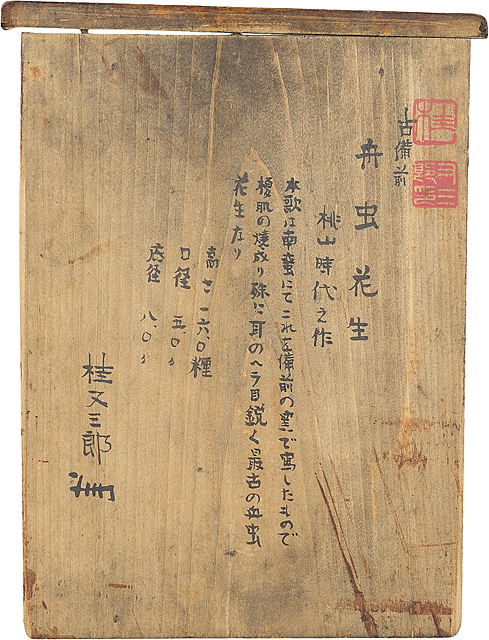 古備前
舟虫花生
桃山時代之作
本歌は南蛮にてこれを備前の窯で写したもので
榎肌の焼成り殊に耳のヘラ目鋭く最古の舟虫
花生なり
高さ 一六、〇糎
口径 五、〇〃
底径 八、〇〃
桂又三郎